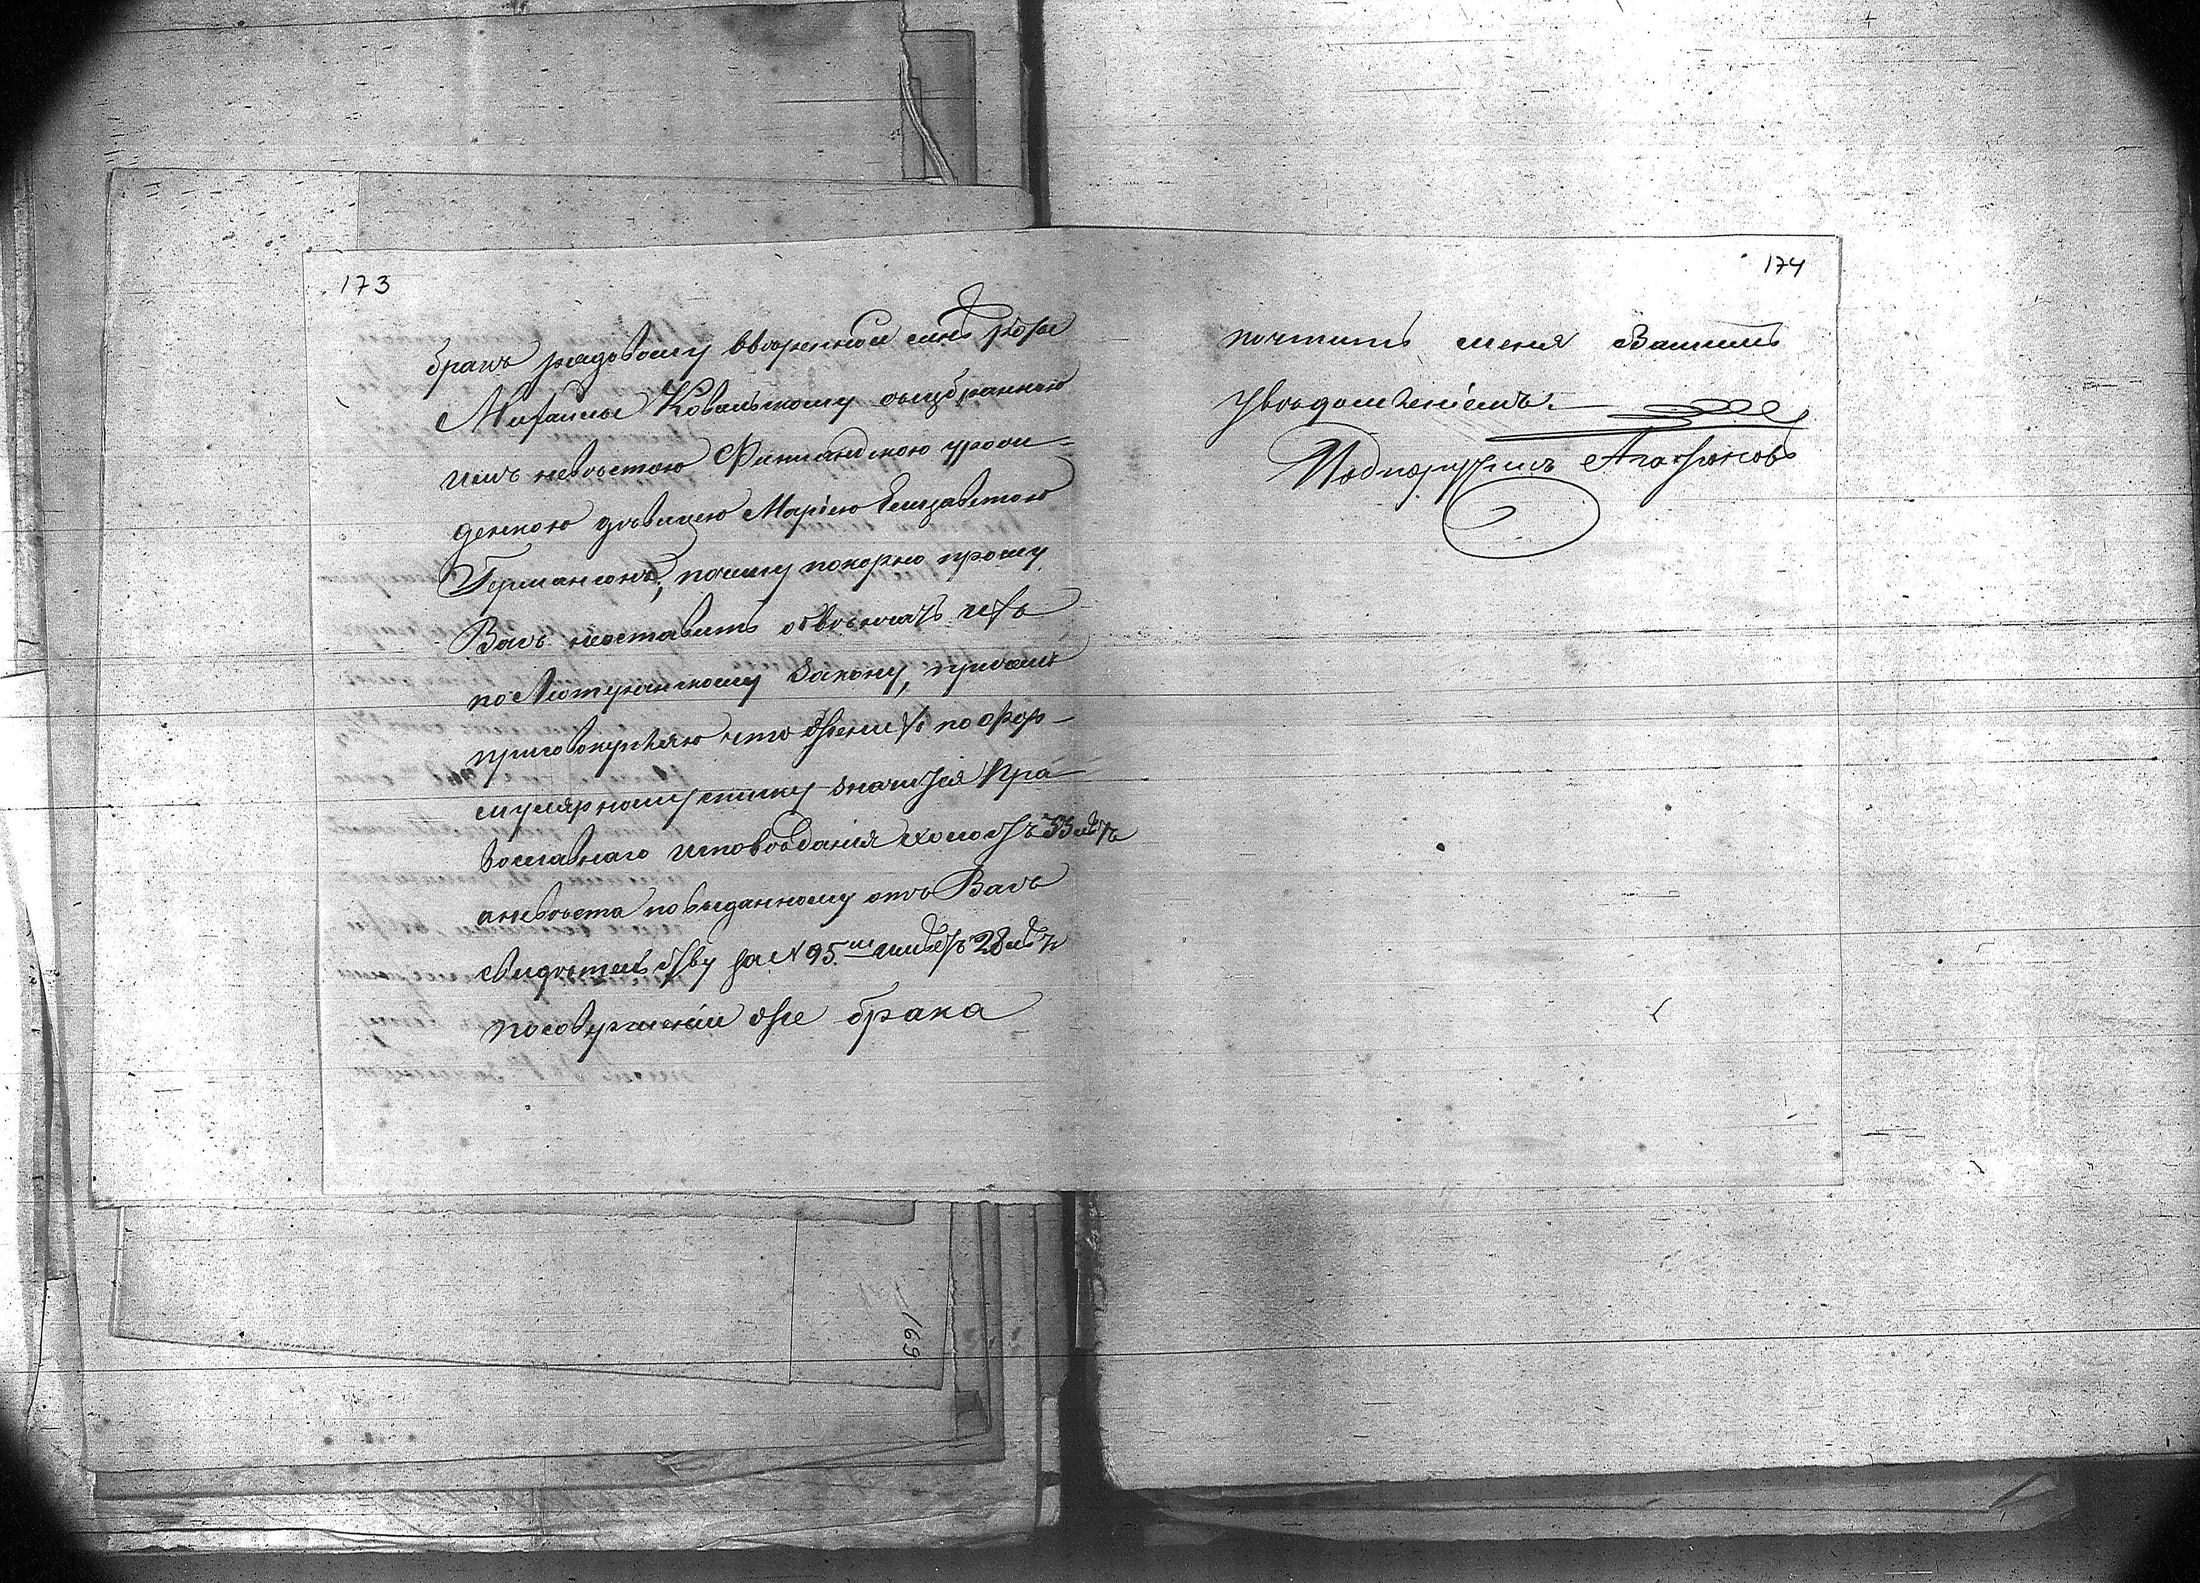 173
бракъ рядовому ввѣренной мнѣ роты
Михайлѣ Ковальскому съизбранною
имъ невѣстою Финляндскою урожи=
денкою дѣвицею Маріею Елизаветою
Германсонъ, почему покорно прошу
Васъ неоставить обвѣнчать ихъ
по Лютеранскому Закону, при чемъ
присовокупляю что женихъ по фор-
мулярному списку значится Пра-
вославнаго исповѣданія холостъ 33 лѣтъ
а невѣста по выданному отъ Васъ
свидѣтельству за N 95. имѣетъ 28 лѣтъ
по совершеніи же брака
174
почтить меня Вашимъ
увѣдомленіемъ.
Подпоручикъ Агафоновъ
169